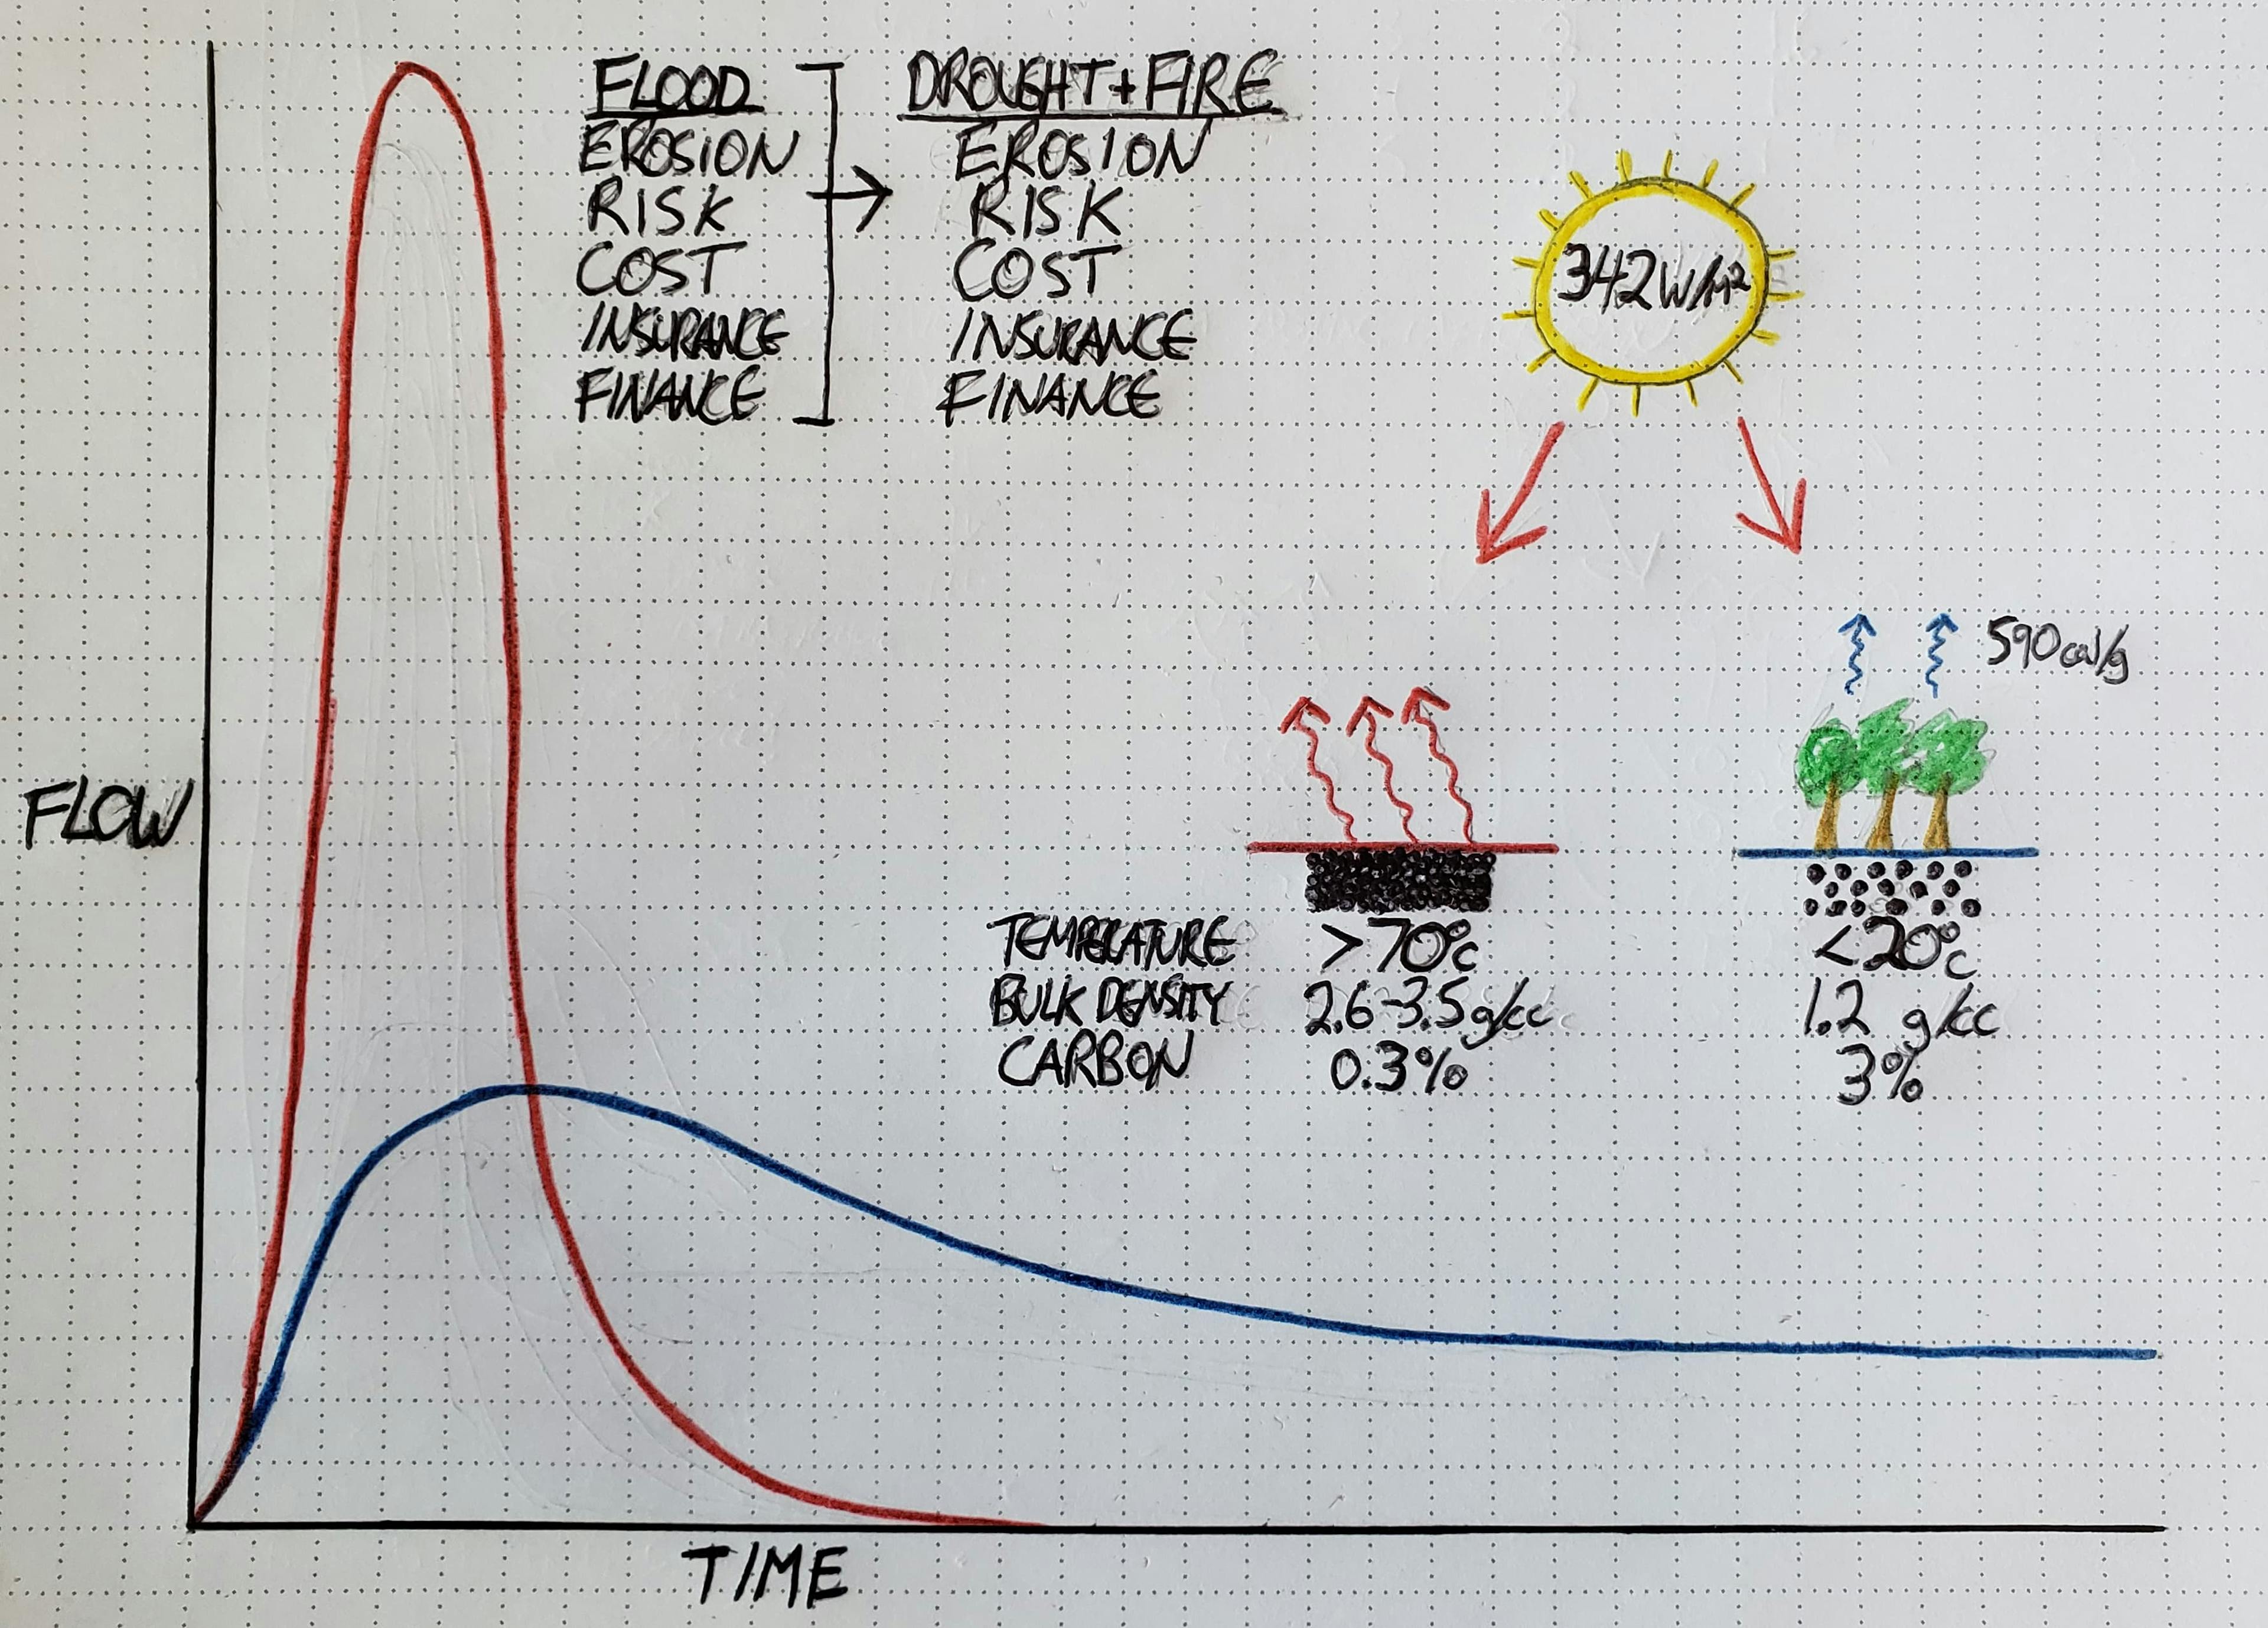 FLOOD
EROSION
RISK
COST
INSURANCE
FINANCE
DROUGHT+FIRE
EROSION
RISK
COST
INSURANCE
FINANCE
342W/m²
590cal/g
FLOW
TEMPERATURE >70°C <20°C
BULK DENSITY 2.6-3.5g/cc 1.2 g/cc
CARBON 0.3% 3%
TIME